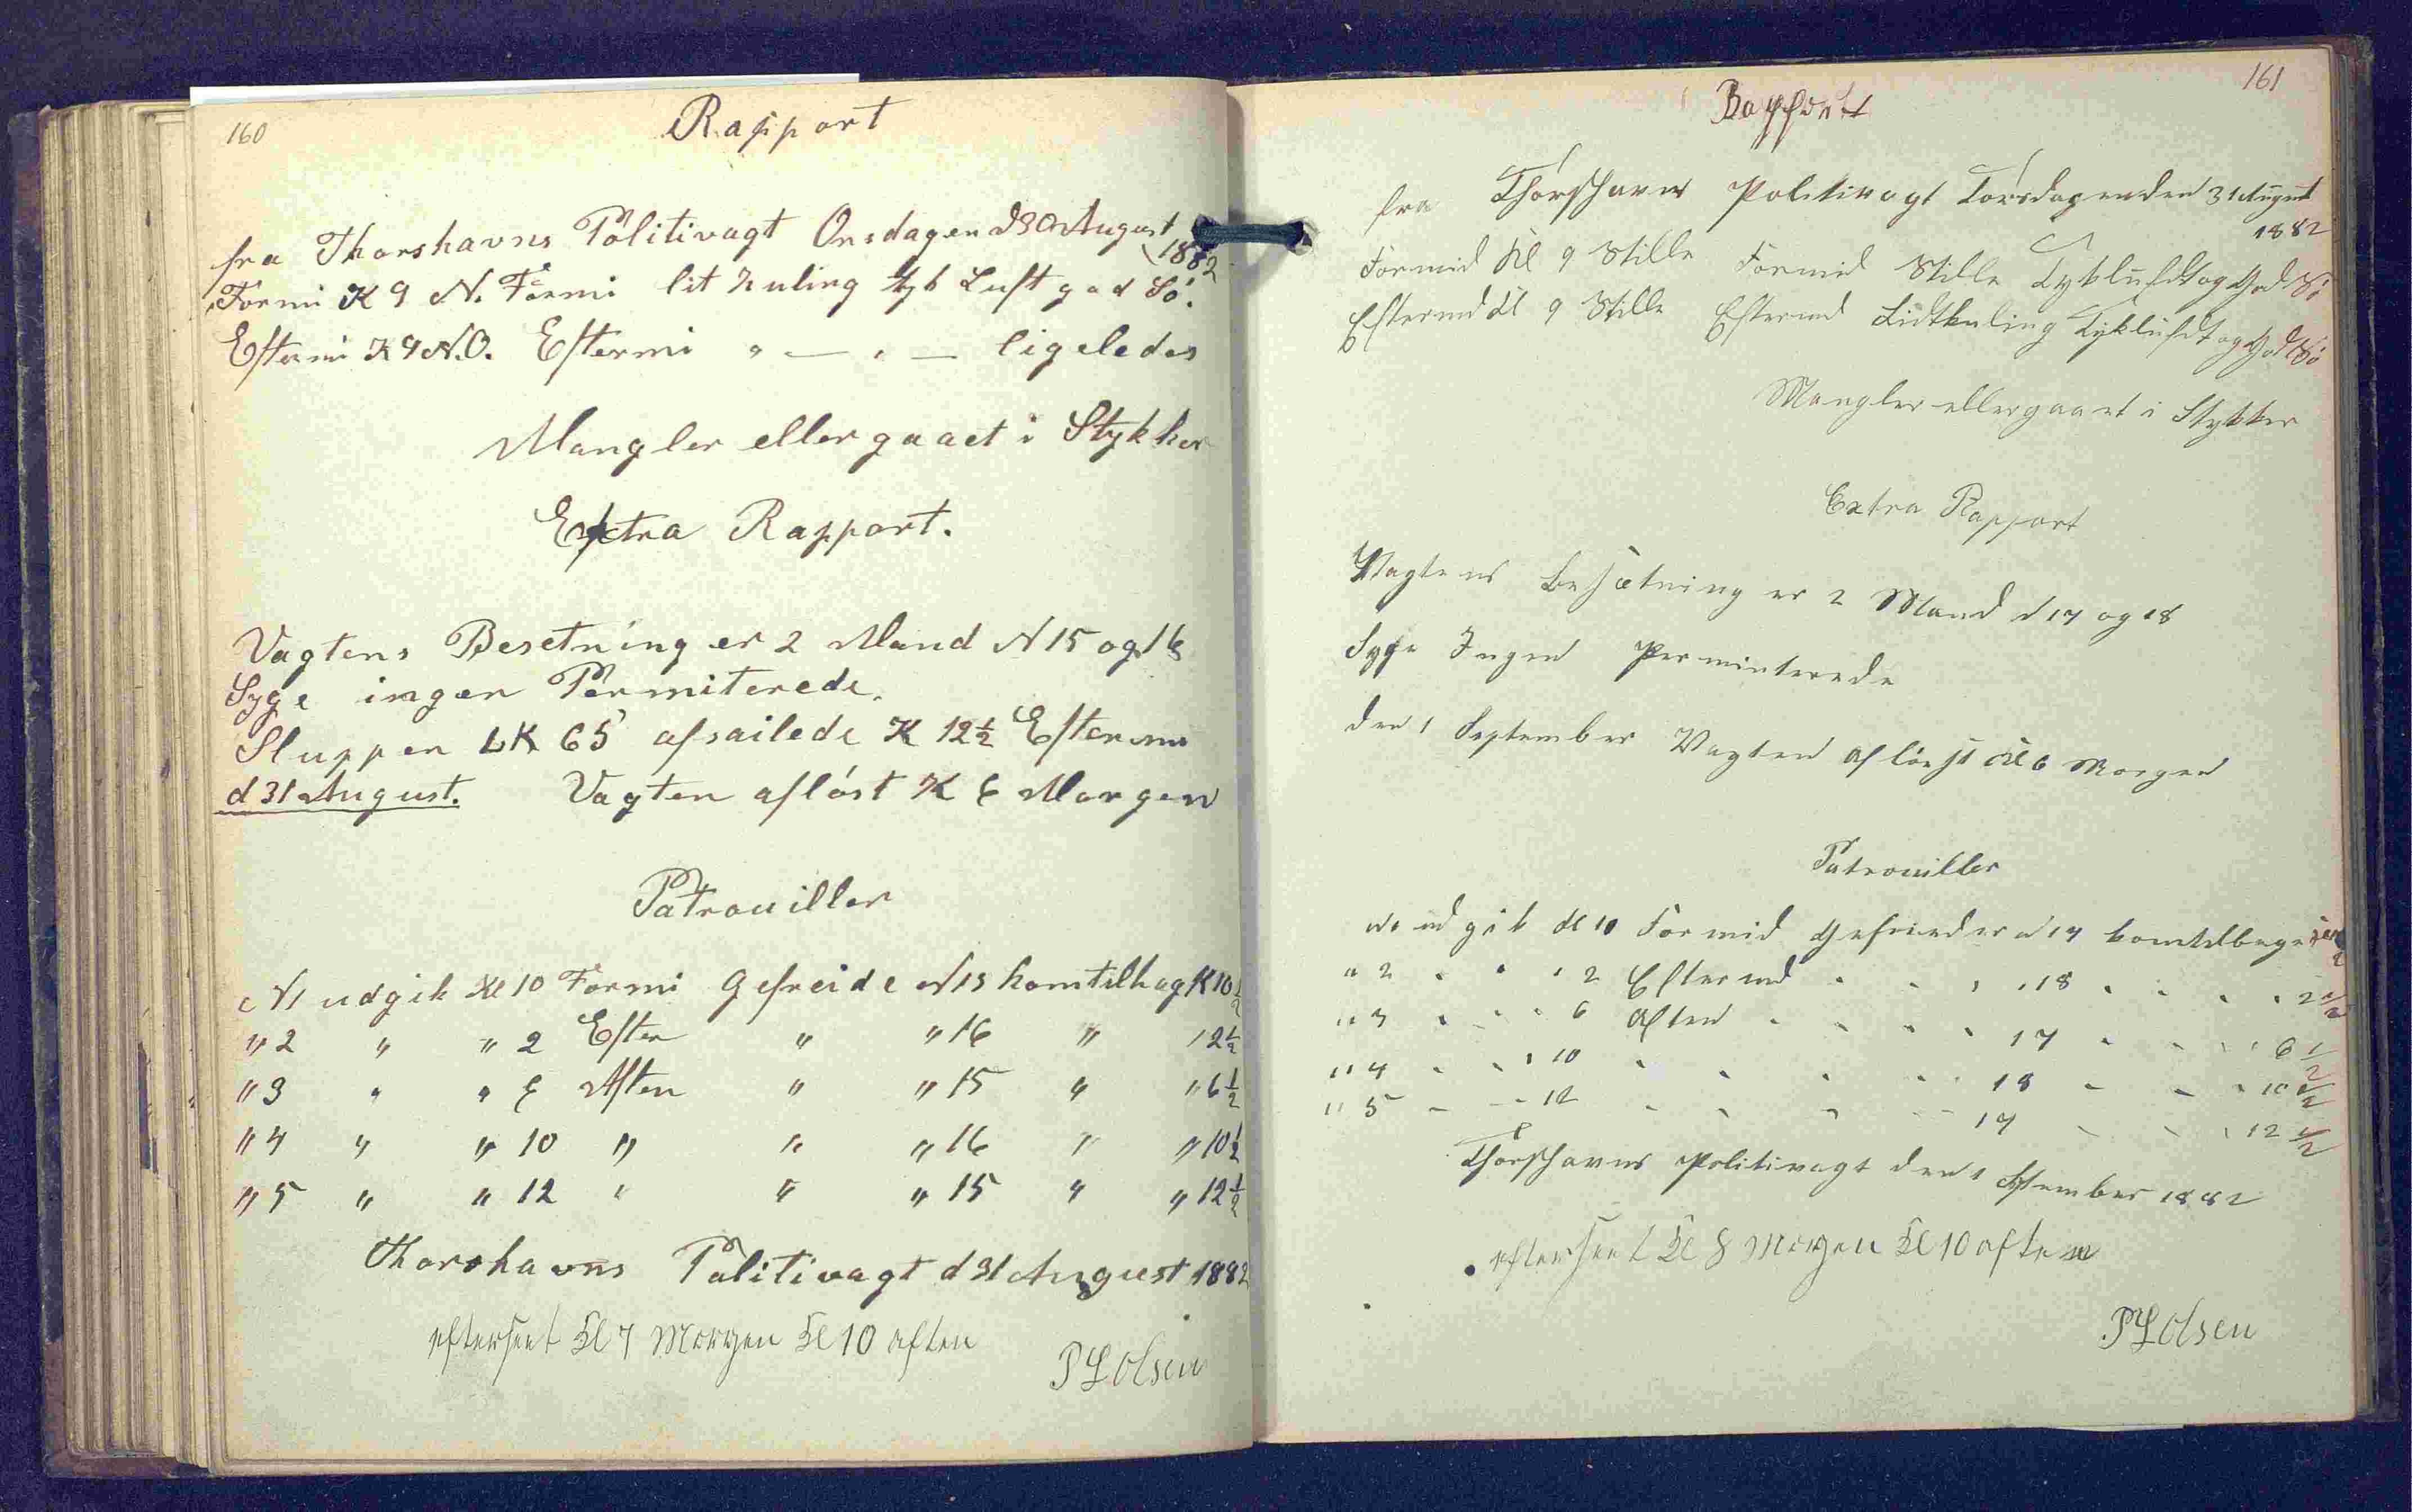 160
Rapport
fra Thorshavns Politivagt Onsdagen d 30 August
1882
Formi K 9 N. Formi lit Kuling tyk Luft god Sö.
Eftermi K 9 N.O. Eftermi " — " — ligeledes
Mangler eller gaaet i Stykker
Extra Rapport.
Vagtens Besetning er 2 Mand N 15 og 16
Syge ingen Permiterede.
Sluppen LK 65 afsailede K 12½ Eftermi
d 31 August. Vagten aflöst K 6 Morgen
Patrouiller
N 1 udgik Kl 10 Formi Gefreide N 15 kom tilbag K 10½
" 2 " " 2 Efter " " 16 " " 2½
" 3 " " 6 Aften " " 15 " " 6½
" 4 " " 10 " " " 16 " " 10½
" 5 " " 12 " " " 15 " " 12½
Thorshavns Politivagt d 31 August 1882
efterseet Kl 7 Morgen Kl 10 aften
P L Olsen
161
Rapport
fra Thorshavns Politivagt Torsdagen den 31 August
1882
Formid Kl 9 Stille Formid Stille Tykluft og God Sö
Eftermd Kl 9 Stille Eftermd Lidtkuling Tykluft og God Sö
Mangler eller gaaet i Stykker
Extra Rapport
Vagtens Besætning er 2 Mand N 17 og 18
Syge Ingen Perminterede
den 1 September Vagten aflöst Kl 6 Morgen
Patrouiller
N 1 udgik Kl 10 Formid Gefreider N 17 kom tilbage
" 2 " " " 2 Eftermd " " " 18 " " " 2½
" 3 " " " 6 Aften " " " 17 " " " 6½
" 4 " " " 10 " " " " 18 " " " 10½
" 5 " " " 12 " " " " 17 " " " 12½
Thorshavns Politivagt den 1 September 1882
efterseet Kl 8 Morgen Kl 10 aften
P L Olsen